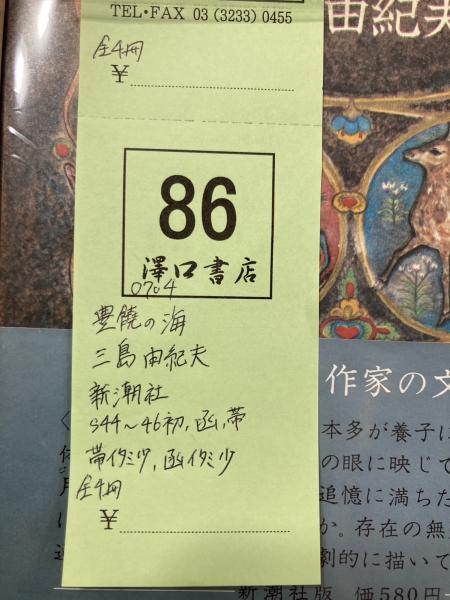 TEL・FAX 03 (3233) 0455
全4冊
¥
由紀夫
86
澤口書店
0704
豊饒の海
三島由紀夫
新潮社
S44〜46初,函,帯
帯イタミ少,函イタミ少
全4冊
¥
作家の文
本多が養子に
の眼に映じて
追憶に満ちた
か。存在の無
劇的に描いて
新潮社版 価580円